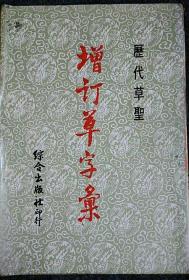 歷代草聖
增訂草字彙
綜合出版社印行